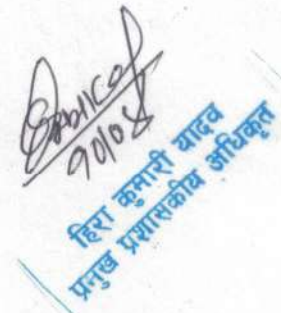 १०/०४
हिरा कुमारी यादव
प्रमुख प्रशासकीय अधिकृत